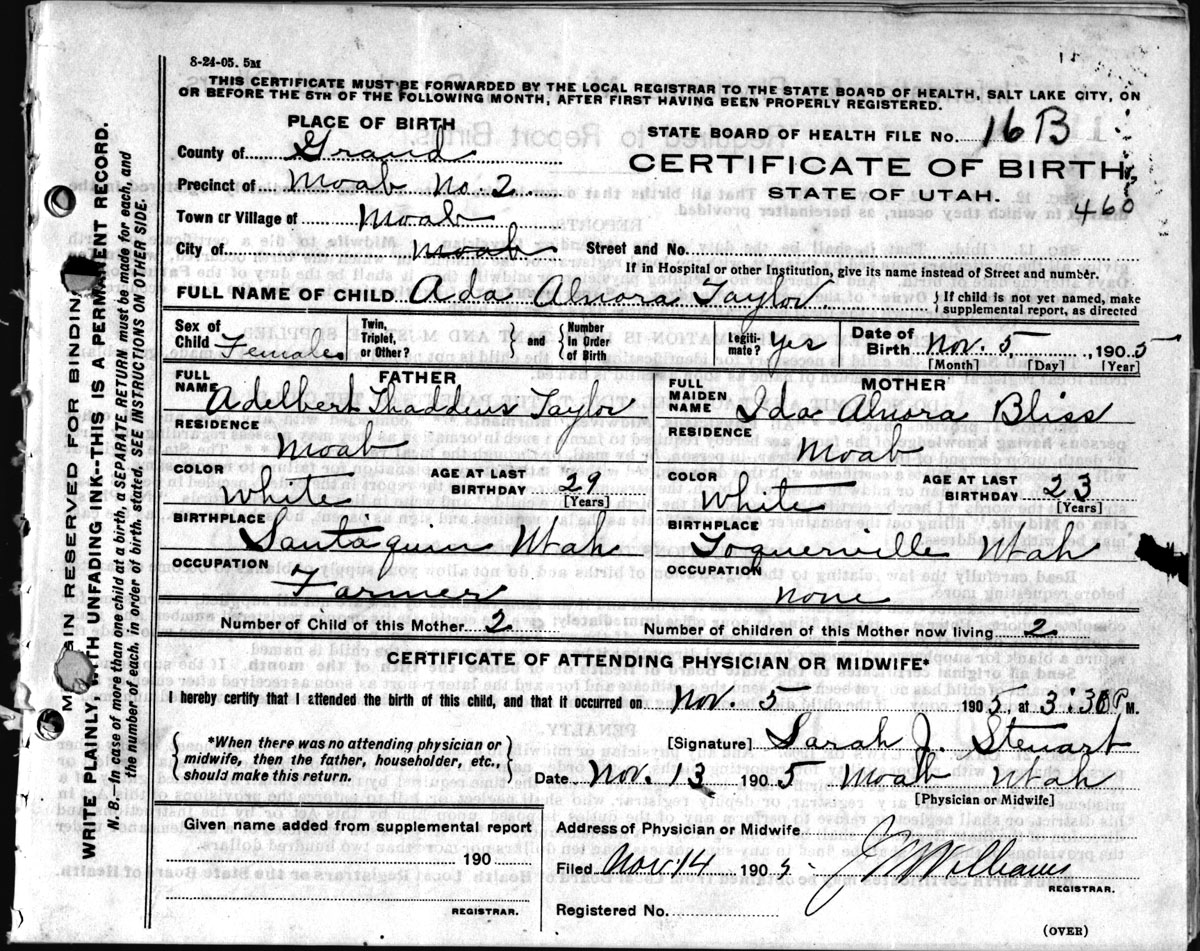 8-24-05. 5M
THIS CERTIFICATE MUST BE FORWARDED BY THE LOCAL REGISTRAR TO THE STATE BOARD OF HEALTH, SALT LAKE CITY, ON
OR BEFORE THE 5TH OF THE FOLLOWING MONTH, AFTER FIRST HAVING BEEN PROPERLY REGISTERED.
PLACE OF BIRTH
STATE BOARD OF HEALTH FILE No. 16 B
County of Grand
CERTIFICATE OF BIRTH
Precinct of Moab No. 2
STATE OF UTAH.
460
Town or Village of Moab
City of Moab Street and No.
If in Hospital or other Institution, give its name instead of Street and number.
FULL NAME OF CHILD Ada Alnora Taylor { If child is not yet named, make supplemental report, as directed
Sex of Child Female Twin, Triplet, or Other? } and { Number in Order of Birth Legiti- mate? Yes Date of Birth Nov. 5, 1905
[Month] [Day] [Year]
FATHER
FULL NAME Adelbert Thaddeus Taylor
RESIDENCE Moab
COLOR White AGE AT LAST BIRTHDAY 29 [Years]
BIRTHPLACE Santaquin Utah
OCCUPATION Farmer
MOTHER
FULL MAIDEN NAME Ida Alnora Bliss
RESIDENCE Moab
COLOR White AGE AT LAST BIRTHDAY 23 [Years]
BIRTHPLACE Toquerville Utah
OCCUPATION None
Number of Child of this Mother 2 Number of children of this Mother now living 2
CERTIFICATE OF ATTENDING PHYSICIAN OR MIDWIFE*
I hereby certify that I attended the birth of this child, and that it occurred on Nov. 5 1905, at 3:30 P M.
{ *When there was no attending physician or midwife, then the father, householder, etc., should make this return. }
[Signature] Sarah J. Stewart
Date Nov. 13 1905 Moab Utah
[Physician or Midwife]
Given name added from supplemental report
190
REGISTRAR.
Address of Physician or Midwife
Filed Nov 14 1905 Williams
REGISTRAR.
Registered No.
(OVER)
MARGIN RESERVED FOR BINDING
WRITE PLAINLY, WITH UNFADING INK--THIS IS A PERMANENT RECORD.
N. B.—In case of more than one child at a birth, a SEPARATE RETURN must be made for each, and
the number of each, in order of birth, stated. SEE INSTRUCTIONS ON OTHER SIDE.